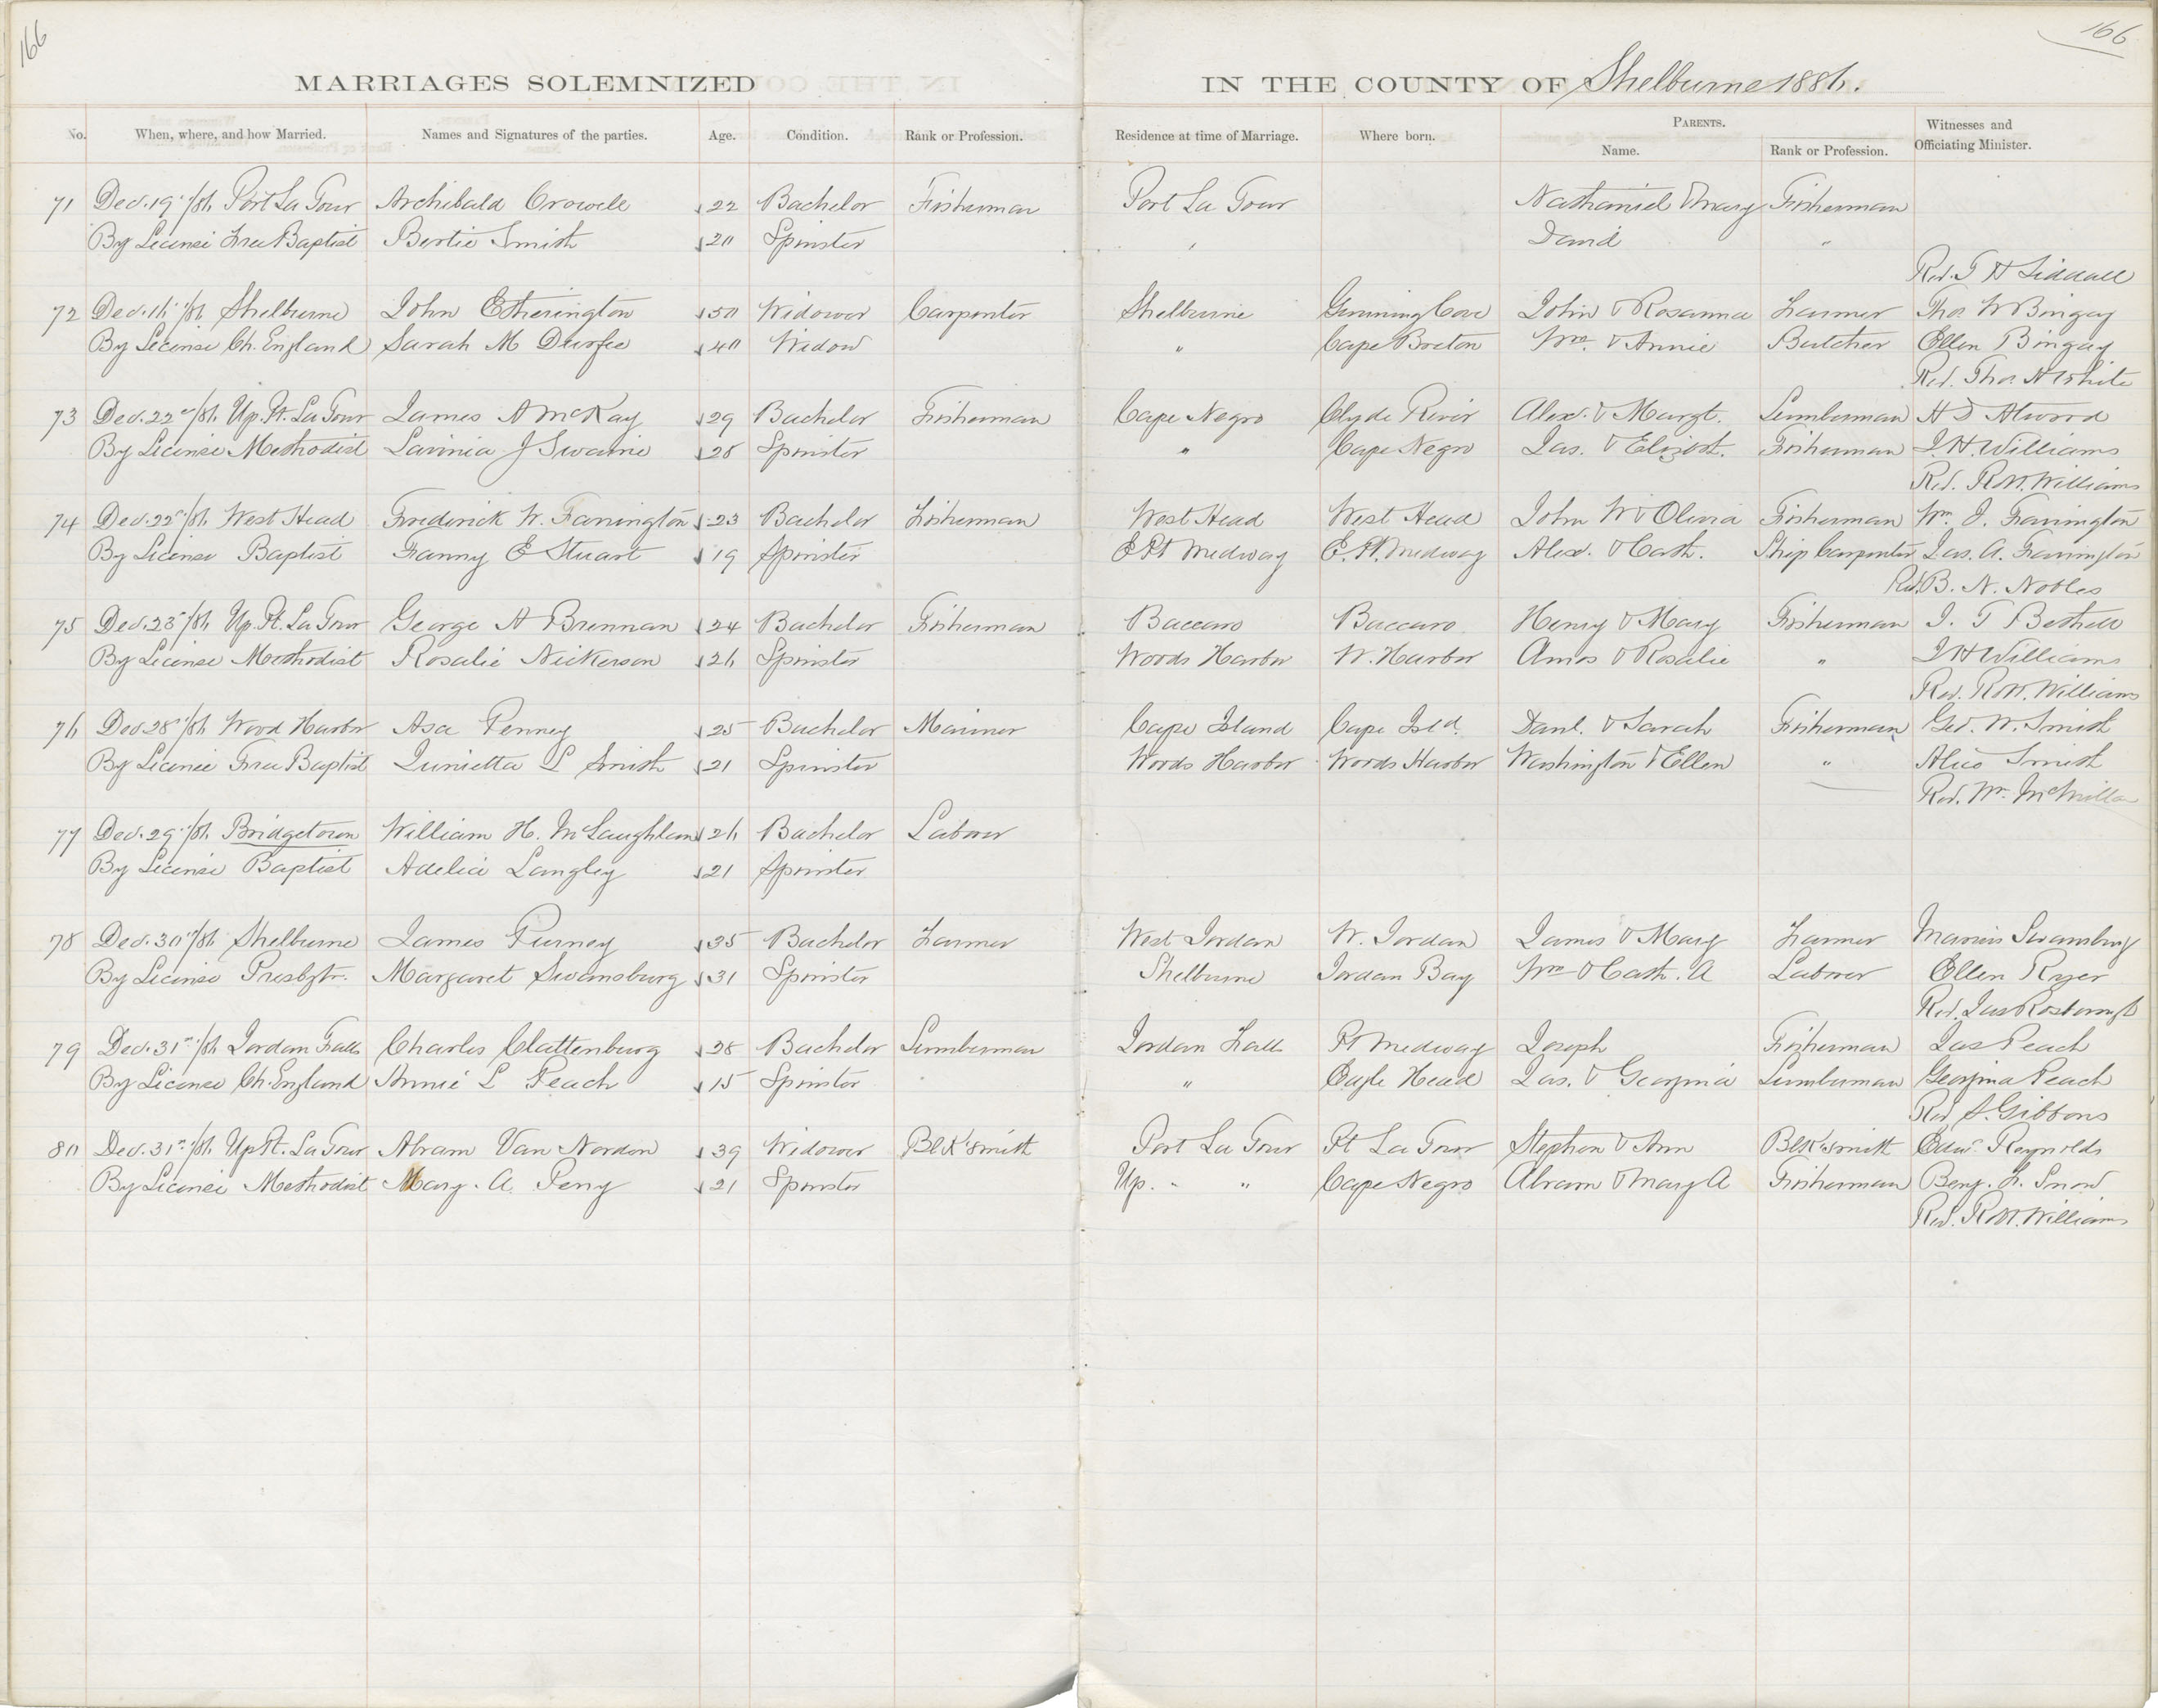 166
166
MARRIAGES SOLEMNIZED IN THE COUNTY OF Shelburne 1886.
No. When, where, and how Married. Names and Signatures of the parties. Age. Condition. Rank or Profession. Residence at time of Marriage. Where born. PARENTS. Name. Rank or Profession. Witnesses and Officiating Minister.
71 Dec. 19"/86 Port La Tour Archibald Crowell 22 Bachelor Fisherman Port La Tour Nathaniel & Mary Fisherman
By License Free Baptist Bertie Smith 20 Spinster " David "
Rev. T H Siddall
72 Dec. 16"/86 Shelburne John Etherington 50 Widower Carpenter Shelburne Gunning Cove John & Rosanna Farmer Thos W Bingay
By License Ch. England Sarah M Durfee 40 Widow " Cape Breton Wm. & Annie Butcher Ellen Bingay
Rev. Thos. H White
73 Dec. 22"/86 Up. Pt. La Tour James A McKay 29 Bachelor Fisherman Cape Negro Clyde River Alex. & Margt. Lumberman H D Atwood
By License Methodist Lavinia J Swaine 28 Spinster " Cape Negro Jas. & Elizbt. Fisherman J. H. Williams
Rev. R. W. Williams
74 Dec. 22"/86 West Head Frederick W. Farrington 23 Bachelor Fisherman West Head West Head John W & Olivia Fisherman Wm J. Farrington
By License Baptist Fanny E Stuart 19 Spinster E Pt Medway E. Pt. Medway Alex. & Cath. Ship Carpenter Jas. A. Farrington
Rev. B. N. Nobles
75 Dec. 23"/86 Up. Pt. La Tour George A Brennan 24 Bachelor Fisherman Baccaro Baccaro Henry & Mary Fisherman J. T Bethell
By License Methodist Rosalie Nickerson 26 Spinster Woods Harbor W. Harbor Amos & Rosalie " J H Williams
Rev. R. W. Williams
76 Dec 28"/86 Wood Harbor Asa Penney 25 Bachelor Mariner Cape Island Cape Isld. Danl. & Sarah Fisherman Geo. W. Smith
By License Free Baptist Junietta L Smith 21 Spinster Woods Harbor Woods Harbor Washington & Ellen " Alice Smith
Rev. Wm. McMillan
77 Dec. 29"/86 Bridgetown William H. McLaughlan 26 Bachelor Labour
By License Baptist Adelia Langley 21 Spinster
78 Dec. 30"/86 Shelburne James Purney 35 Bachelor Farmer West Jordan W. Jordan James & Mary Farmer Swansburg
By License Presbytr. Margaret Swansburg 31 Spinster Shelburne Jordan Bay Wm & Cath. A Laborer Ellen Ryer
Rev. Jas Rosborough
79 Dec. 31"/86 Jordan Falls Charles Clattenburg 28 Bachelor Lumberman Jordan Falls Pt Medway Joseph Fisherman Jas Peach
By License Ch. England Annie L Peach 15 Spinster " Eagle Head Jas. & Georgina Lumberman Georgina Peach
Rev S. Gibbons
80 Dec. 31"/86 Up Pt. La Tour Abram Van Norden 39 Widower Blk'smith Port La Tour Pt La Tour Stephen & Ann Blk'smith Edw. Reynolds
By License Methodist Mary. A. Perry 21 Spinster Up. " " Cape Negro Abram & Mary A Fisherman Benj. F. Snow
Rev. R. W. Williams